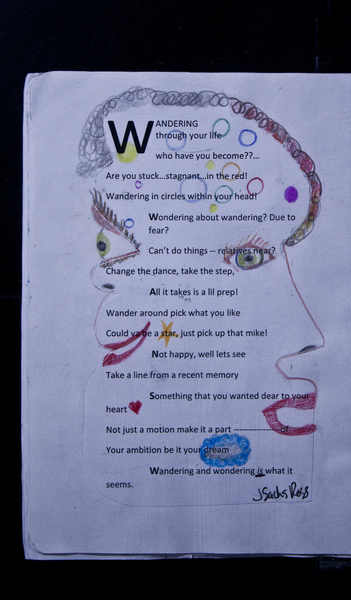 WANDERING
through your life
who have you become??...
Are you stuck...stagnant...in the red!
Wandering in circles within your head!
Wondering about wandering? Due to
fear?
Can't do things -- relatives near?
Change the dance, take the step,
All it takes is a lil prep!
Wander around pick what you like
Could ya be a star, just pick up that mike!
Not happy, well lets see
Take a line from a recent memory
Something that you wanted dear to your
heart
Not just a motion make it a part ----------------of
Your ambition be it your dream
Wandering and wondering is what it
seems.
JSachs Ross